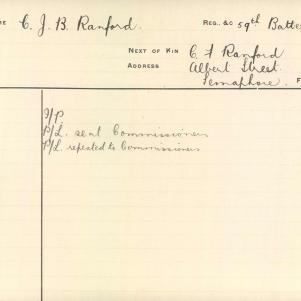 ME C. J. B. Ranford. REG. &C 59th Batte
NEXT OF KIN C F Ranford
ADDRESS Albert Street.
Semaphore. F
I/P.
P/L. sent Commissioners
P/L. repeated to Commissioners